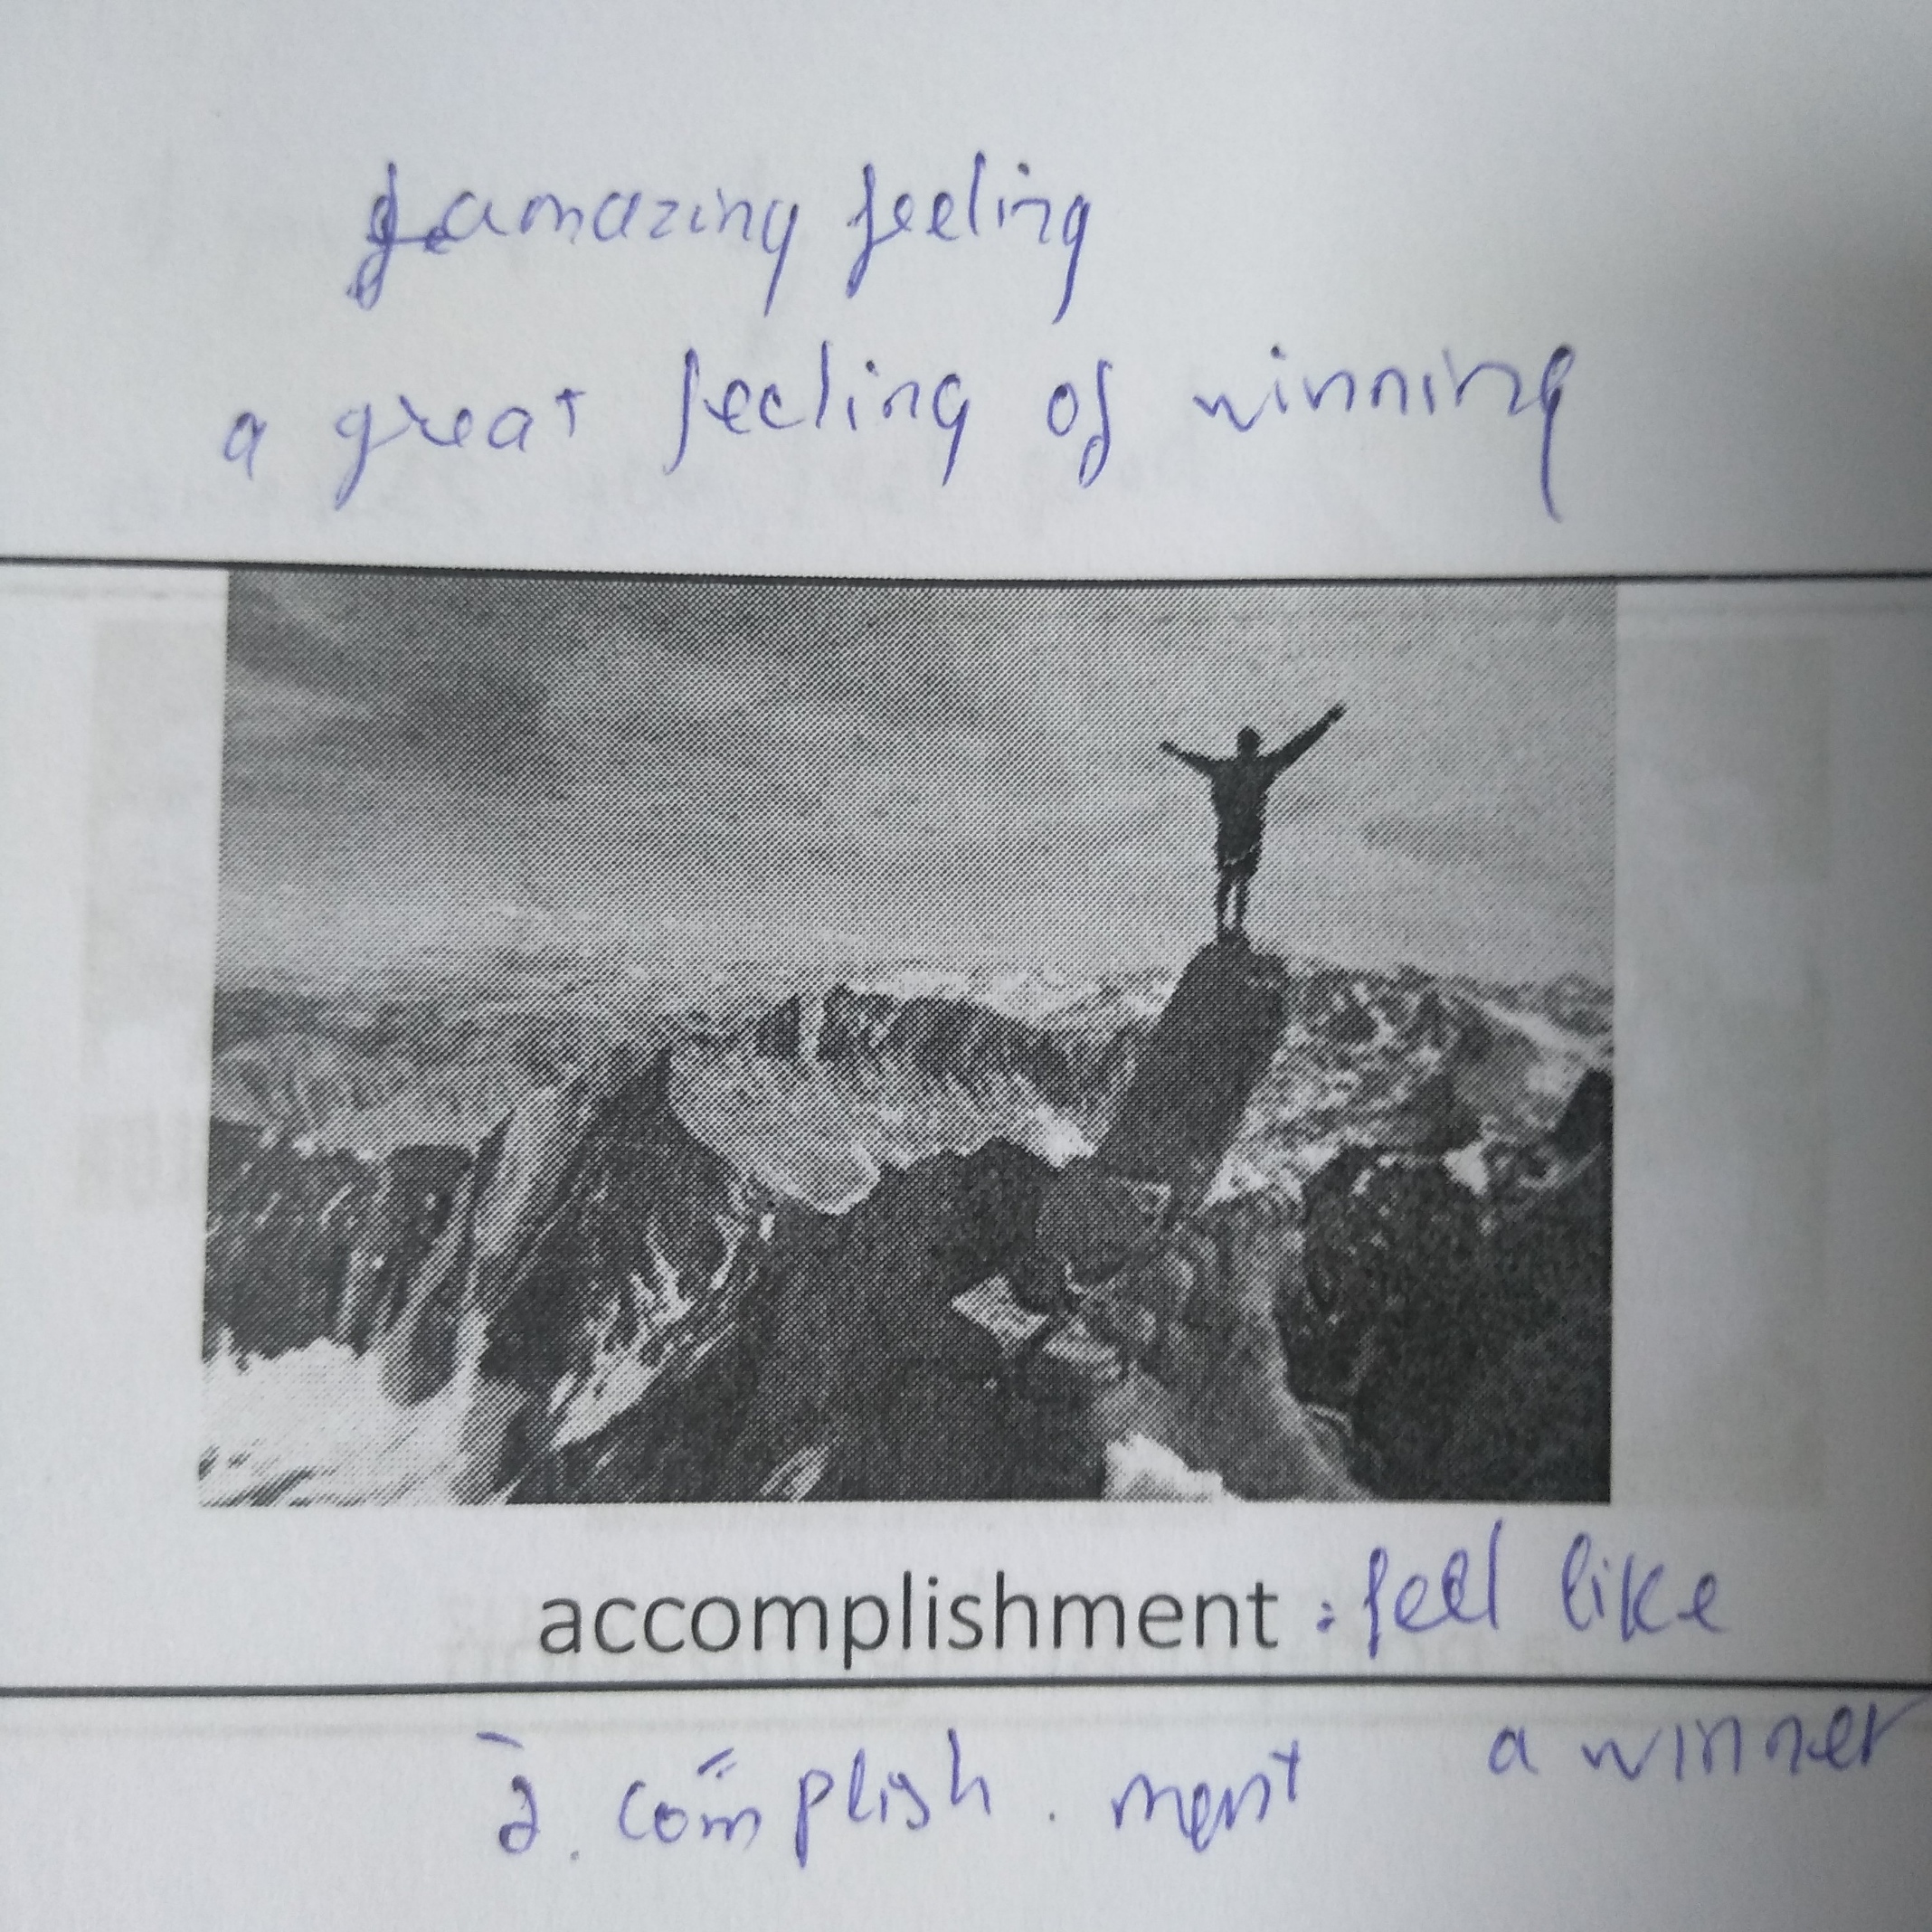 amazing feeling
a great feeling of winning
accomplishment : feel like
a winner
ə. complish . mənt